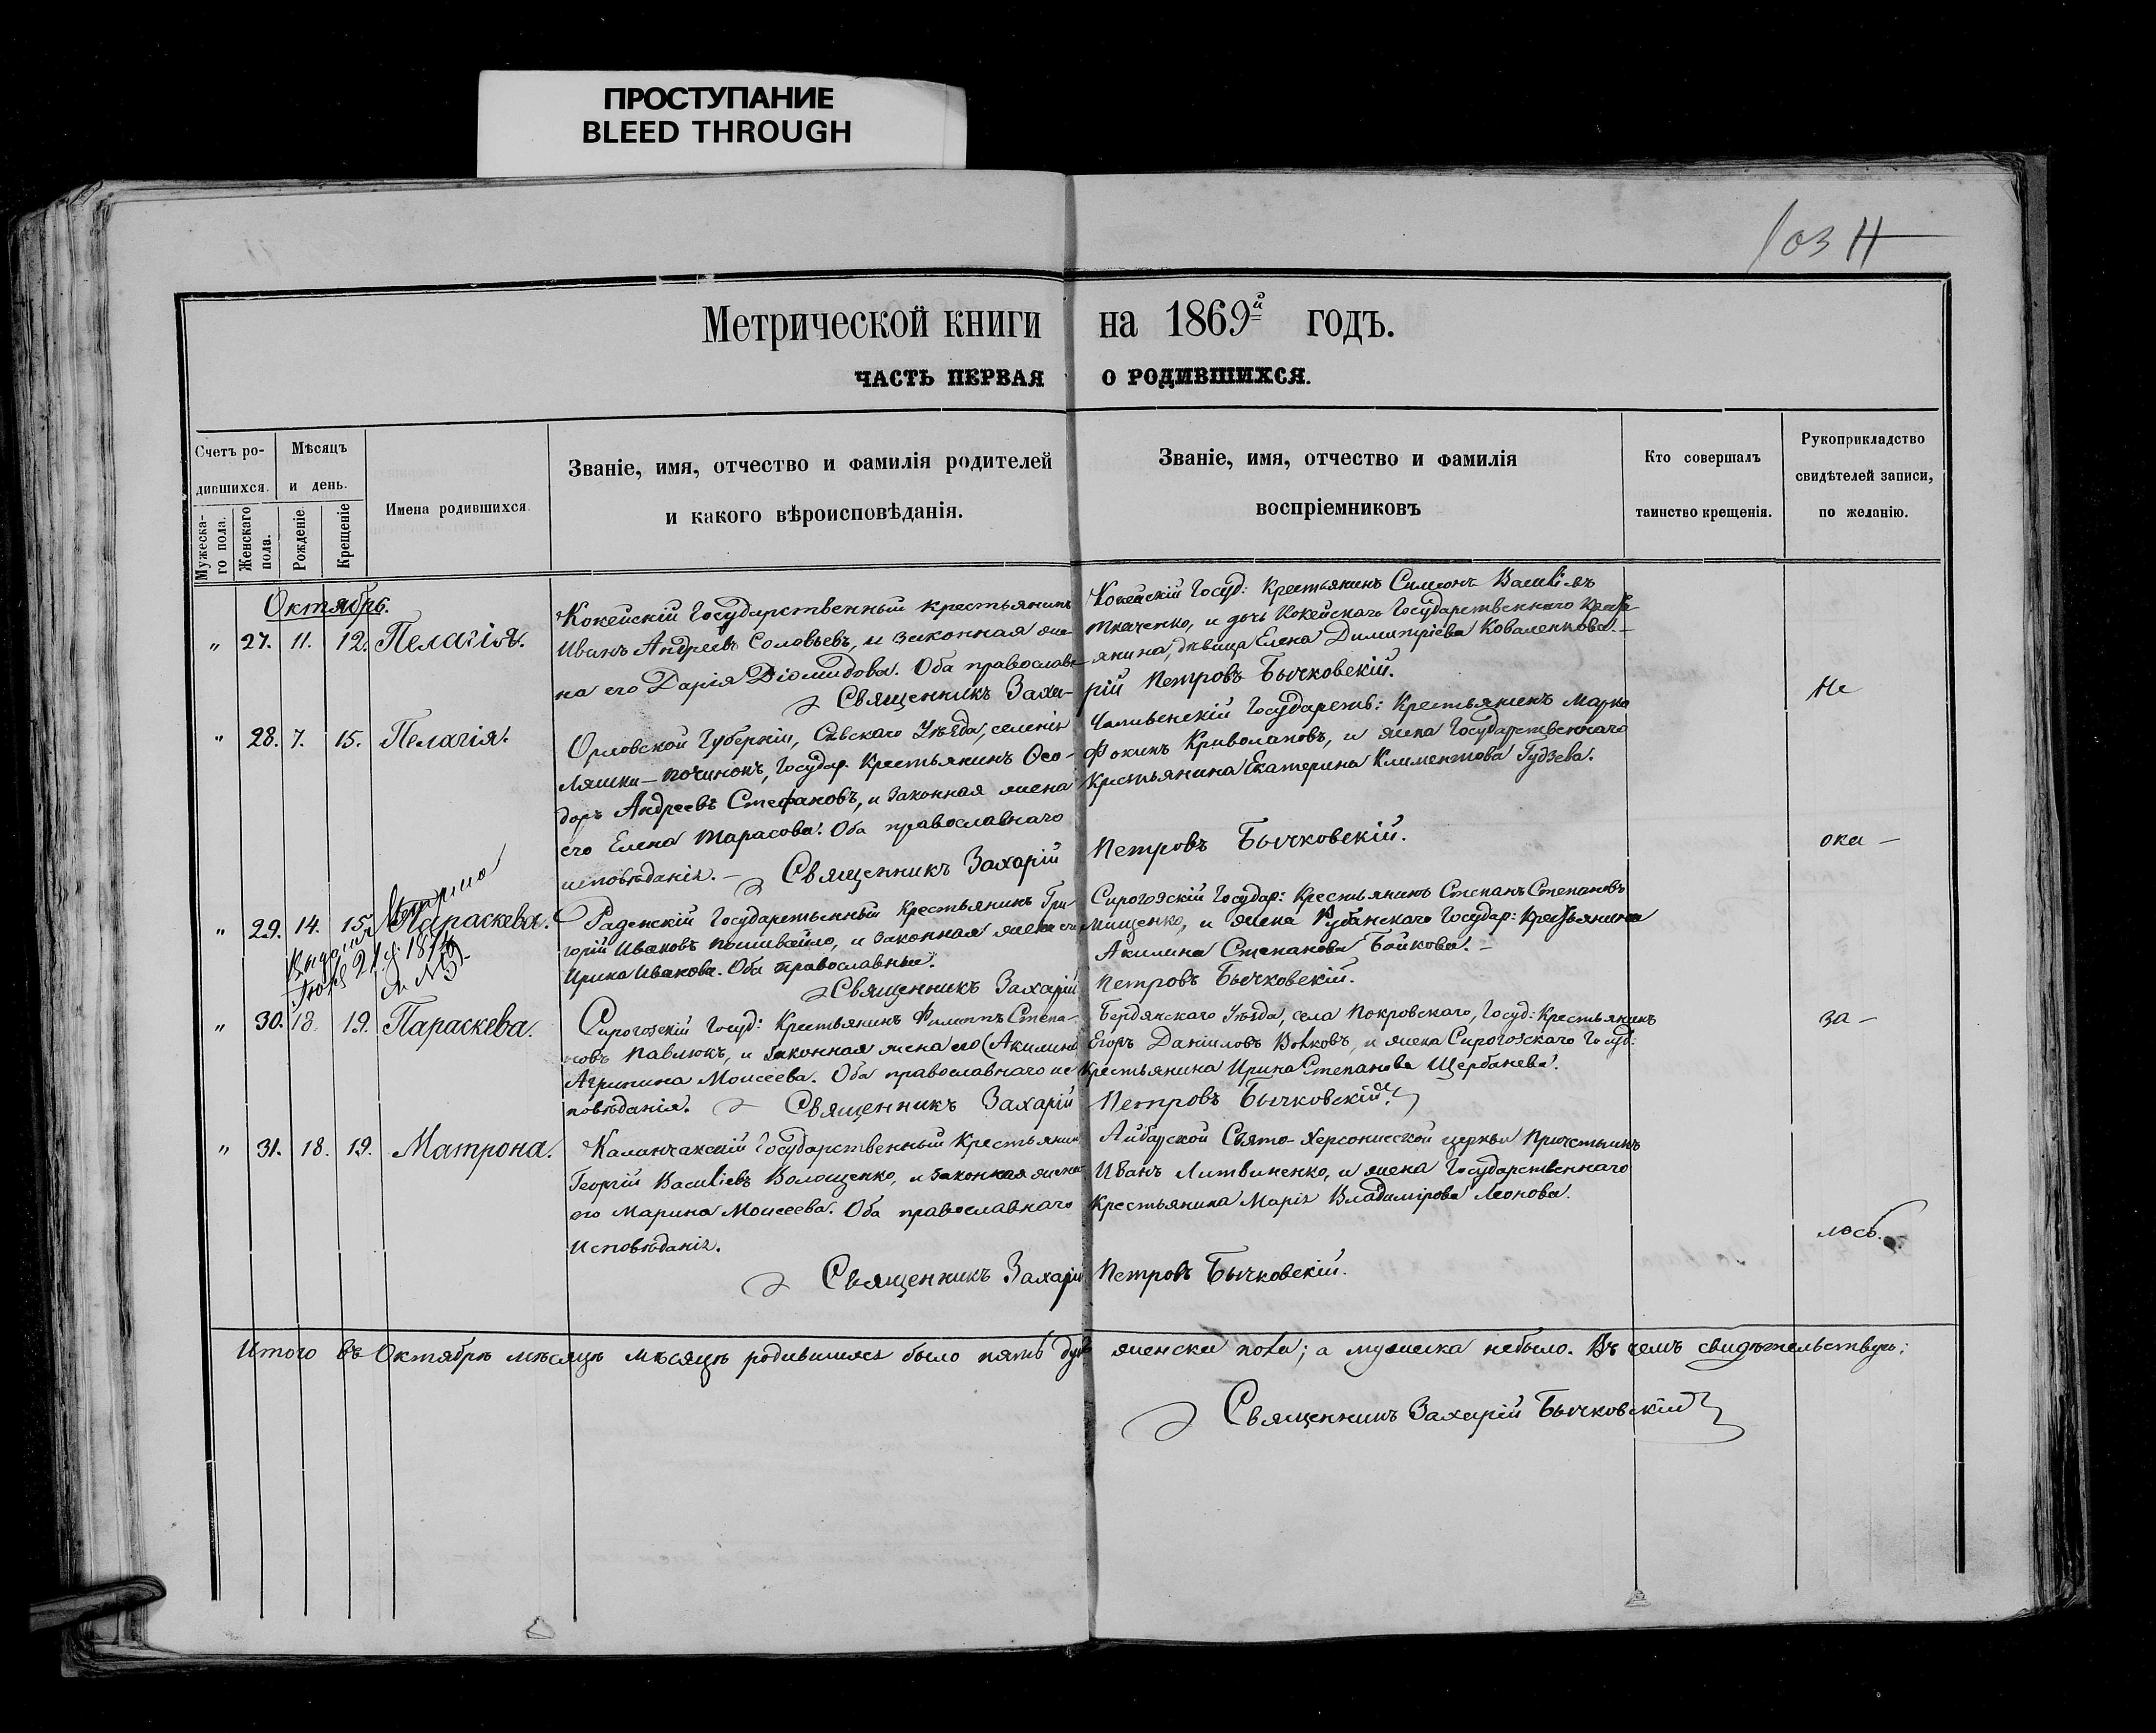 ПРОСТУПАНИЕ
BLEED THROUGH
103 Н
Метрической книги на 1869й годъ.
ЧАСТЬ ПЕРВАЯ О РОДИВШИХСЯ.
Счетъ ро-
дившихся.
Мужеска-
го пола.
Женскаго
пола.
Мѣсяцъ
и день.
Рожденіе.
Крещеніе
Имена родившихся.
Званіе, имя, отчество и фамилія родителей
и какого вѣроисповѣданія.
Званіе, имя, отчество и фамилія
воспріемниковъ
Кто совершалъ
таинство крещенія.
Рукоприкладство
свидѣтелей записи,
по желанію.
Октябрь.
" 27. 11. 12. Пелагія.
Кокейскій Государственный крестьянинъ
Иванъ Андреевъ Соловьевъ, и законная же-
на его Дарія Діомидова. Оба православн
Священникъ Заха-
Кокейскій Госуд: Крестьянинъ Симеонъ Васильевъ
Ткаченко, и дочь Кокейскаго Государственнаго Крест-
янина, дѣвица Елена Димитріева Коваленкова.
рій Петровъ Бычковскій.
Не
" 28. 7. 15. Пелагія.
Орловской Губерніи, Сѣвскаго Уѣзда, селенія
Ляшки-Починокъ, Государ. Крестьянинъ Ѳео-
доръ Андреевъ Стефановъ, и законная жена
его Елена Тарасова. Оба православнаго
исповѣданія. – Священникъ Захарій
Государств: Крестьянинъ Марко
Фокинъ Криволаповъ, и жена Государственнаго
Крестьянина Екатерина Климентова Гудзева.
Петровъ Бычковскій.
ока –
" 29. 14. 15. Параскева.
Раденскій Государственный Крестьянинъ Гри-
горій Ивановъ Пошивайло, и законная жена его
Ирина Иванова. Оба православные.
Священникъ Захарій
Сирогозскій Государ: Крестьянинъ Степанъ Степановъ
Мищенко, и жена Рубанскаго Государ: Крестьянина
Акилина Степанова Бойкова. –
Петровъ Бычковскій.
" 30. 18. 19. Параскева.
Сирогозскій Госуд: Крестьянинъ Филиппъ Степа-
новъ Павлюкъ, и законная жена его (Акилина
Агрипина Моисеева. Оба православнаго ис
повѣданія. Священникъ Захарій
Бердянскаго Уѣзда, села Покровскаго, Госуд: Крестьянинъ
Егоръ Даниловъ Волковъ, и жена Сирогозскаго Госуд:
Крестьянина Ирина Степанова Щербанева.
Петровъ Бычковскій.
за –
" 31. 18. 19. Матрона.
Каланчакскій Государственный Крестьянин
Георгій Васильевъ Волощенко, и законная жена
его Марина Моисеева. Оба православнаго
Исповѣданія.
Священникъ Захарій
Айбарской Свято-Херсонисской церкви Причетникъ
Иванъ Литвиненко, и жена Государственнаго
Крестьянина Марія Владимірова Леонова.
Петровъ Бычковскій.
лось.
Итого въ Октябрѣ мѣсяцѣ мѣсяцѣ родившихся было пять душ женска пола; а мужеска небыло. Въ чемъ свидѣтельствую:
Священникъ Захарій Бычковскій